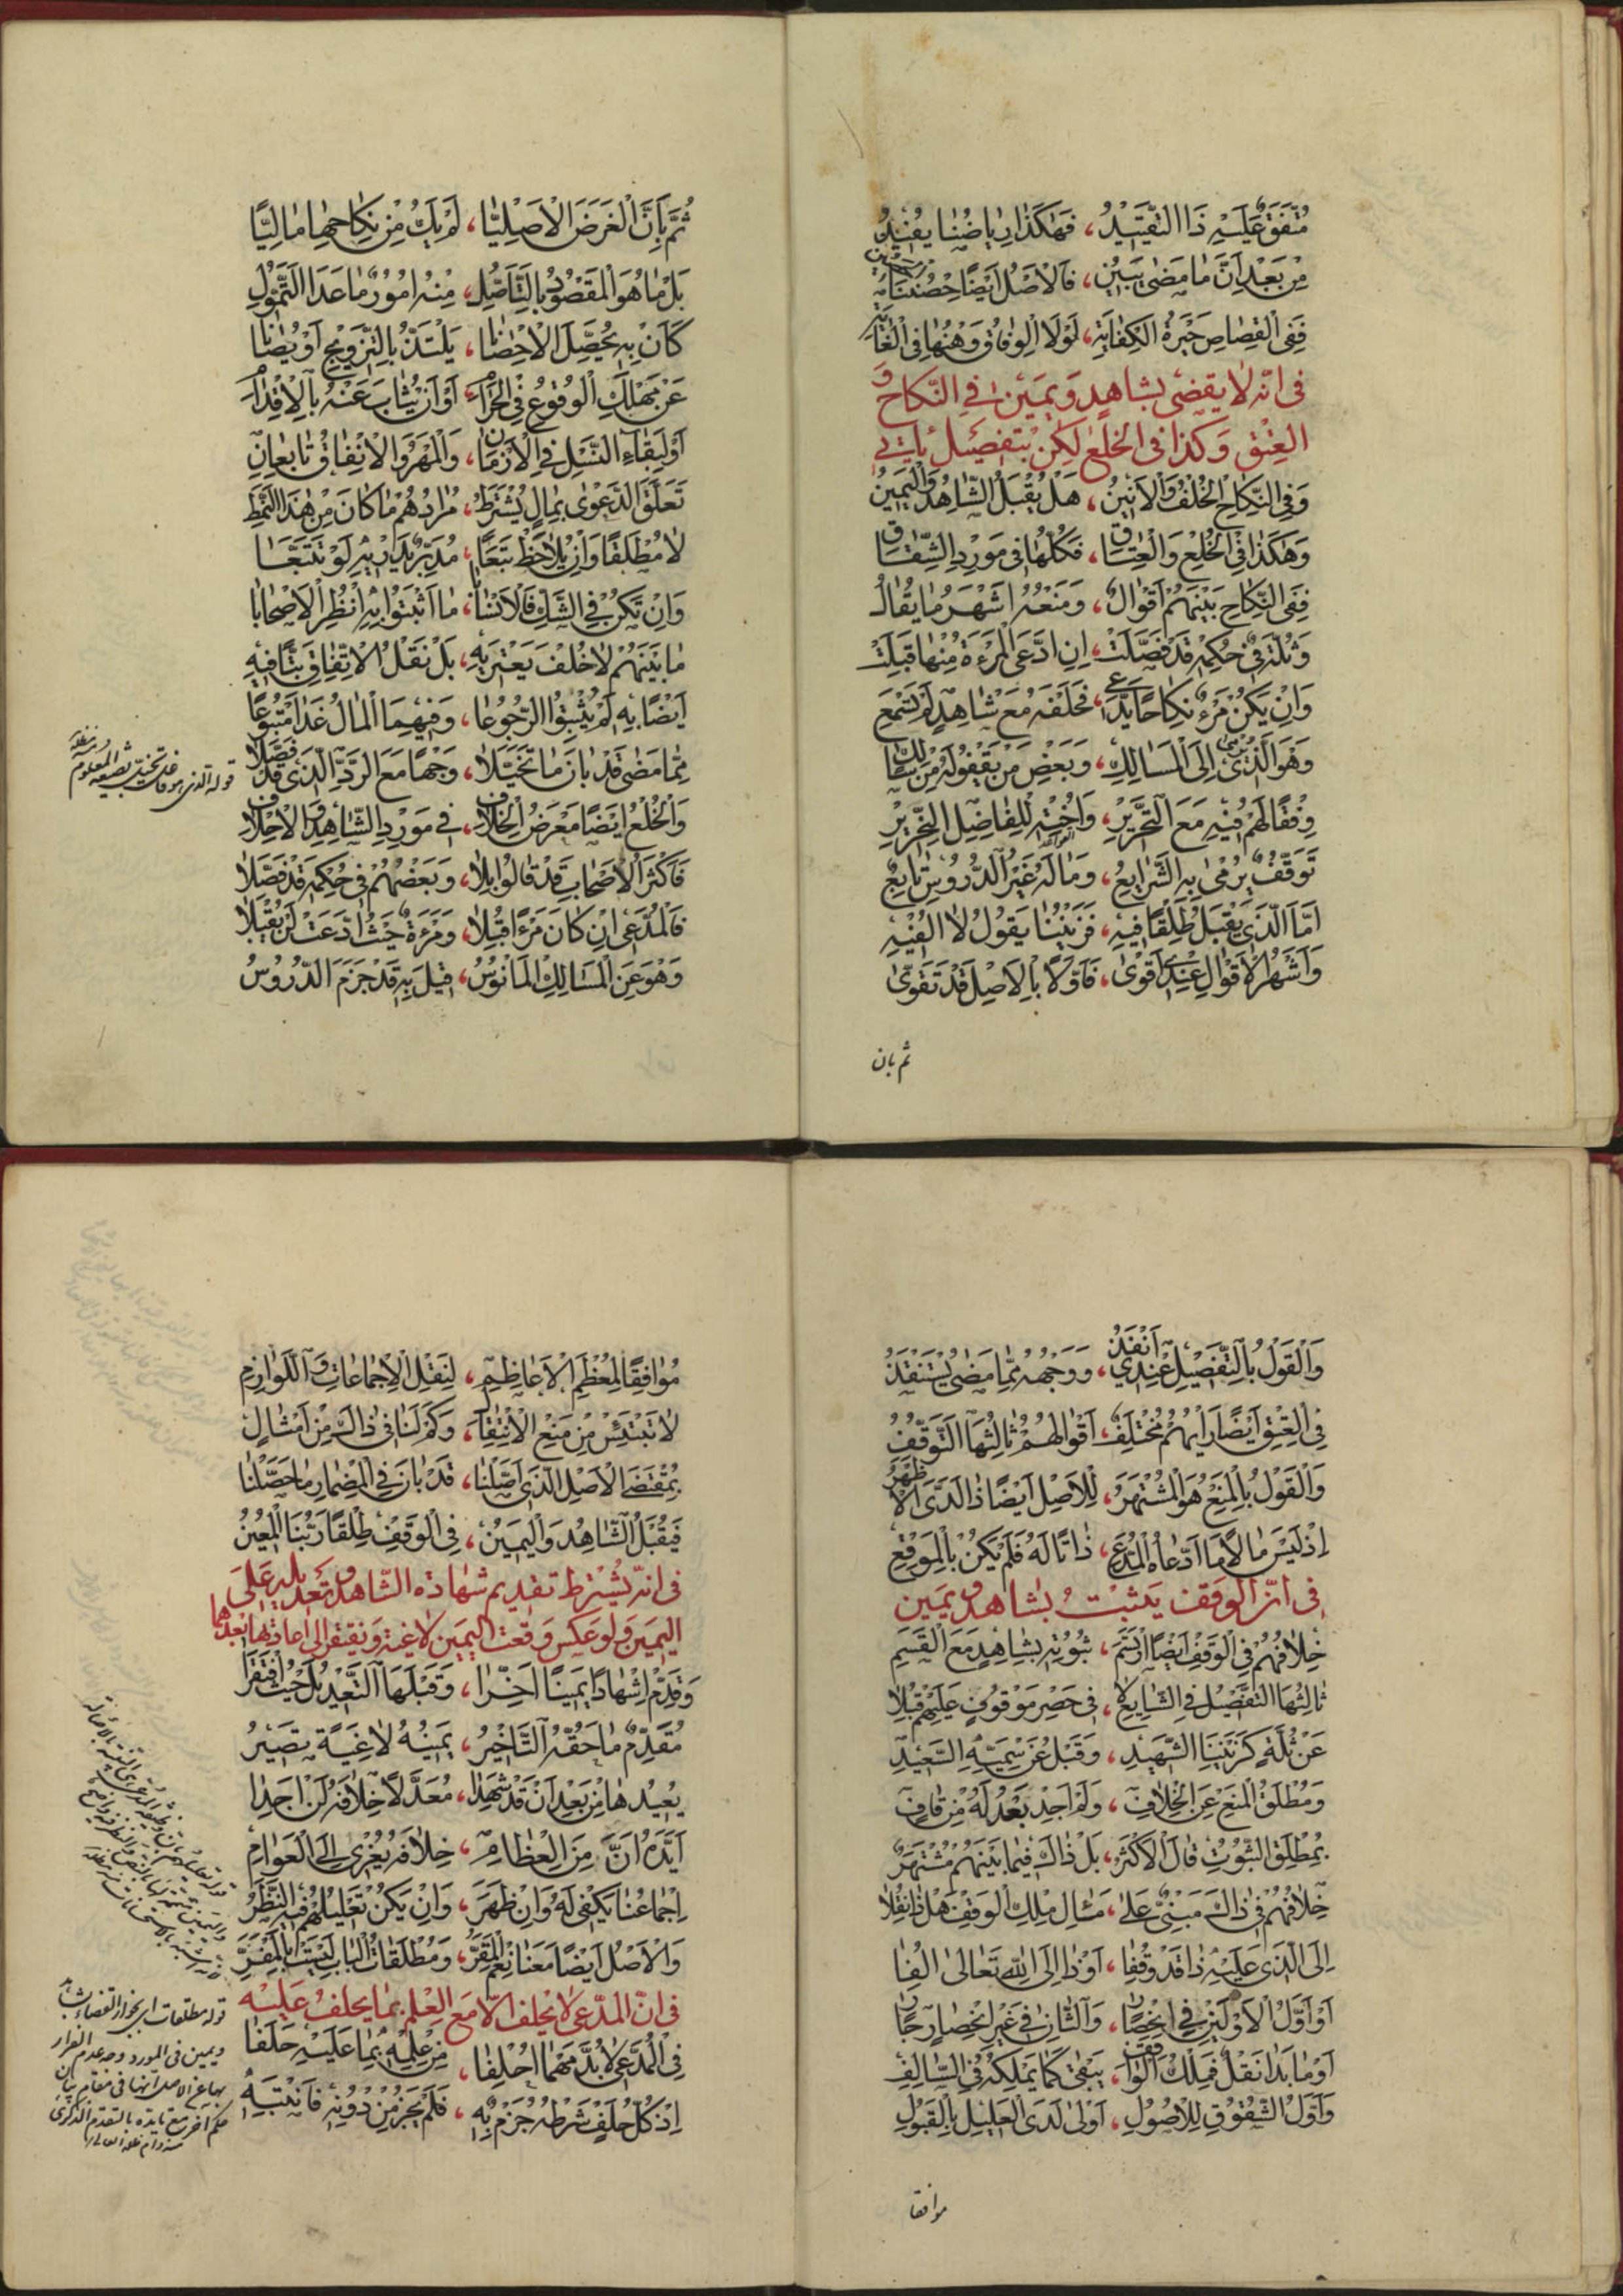 مُتَّفَقٌ عَلَيْهِ ذَا التَّقْيِيدُ، فَهٰكَذَا رِيَاضُنَا يُفِيدُ
مِنْ بَعْدِ اَنَّ مٰا مَضىٰ يَبِينُ، فَالْاَصْلُ اَيْضًا حِصْنُنَا
فَفِى الْقِصٰاصِ خَبْرَةُ الْكِفٰايَةِ، لَوْلَا الْوِفٰاقُ وَهْنُهٰا فِى الْغٰايَةِ
فى انّه لا يقضى بشاهد ويمين فى النّكاح و
العتق وكذا فى الخلع لكن بتفصيل ياتى
وَفِى النِّكٰاحِ الْخُلْفُ وَالْاَنِينُ، هَلْ يُقْبَلُ الشّٰاهِدُ وَالْيَمِينُ
وَهٰكَذٰا فِى الْخُلْعِ وَالْعِتٰاقِ، فَكُلُّهٰا فِى مَوْرِدِ الشِّقٰاقِ
فَفِى النِّكٰاحِ بَيْنَهُمْ اَقْوٰالٌ، وَمَنْعُهُ اَشْهَرُ مٰا يُقٰالُ
وَثُلَّةٌ فِى حُكْمِهِ قَدْ فَصَّلَتْ، اِنِ ادَّعَى الْمَرْءَةُ مِنْهٰا قُبِلَتْ
وَاِنْ يَكُنْ مَرْءٌ نِكٰاحًا يَدَّعِى، فَحَلْفُهُ مَعْ شٰاهِدٍ لَمْ يُسْمَعِ
وَهْوَ الَّذِى يُرْمىٰ اِلَى الْمَسٰالِكِ، وَبَعْضِ مَنْ يَقْفُو لَهُ مِنْ سٰالِكِ
وِفْقًا لَهُمْ فِيهِ مَعَ التَّحْرِيرِ، وَاُخْتِهِ لِلْفٰاضِلِ النِّحْرِيرِ
تَوَقُّفٌ يُرْمىٰ بِهِ الشَّرٰايِعُ، وَمٰا لَهُ غَيْرَ الدُّرُوسِ تٰابِعٌ
اَمَّا الَّذِى يَقْبَلُ طِلْقًا فِيهِ، فَزَيْنُنٰا يَقُولُ لٰا اُلْفِيهِ
وَاَشْهَرُ الْاَقْوٰالِ عِنْدِى اَقْوىٰ، فَاَوَّلًا بِالْاَصْلِ قَدْ تَقَوّىٰ
ثم بان
ثُمَّ بِاَنَّ الْغَرَضَ الْاَصْلِيّٰا، لَمْ يَكُ مِنْ نِكٰاحِهٰا مٰالِيًّا
بَلْ مٰا هُوَ الْمَقْصُودُ بِالتَّاَصُّلِ، مِنْهُ اُمُورٌ مٰا عَدَا التَّمَوُّلِ
كَاَنْ بِهِ يُحَصِّلَ الْاِحْصٰانٰا، يَلْتَذُّ بِالتَّزْوِيجِ اَوْ يُصٰانٰا
عَنْ مَهْلَكِ الْوُقُوعِ فِى الْحَرٰامِ، اَوْ اَنْ يُثٰابَ عَنْهُ بِالْاِقْدٰامِ
اَوْ لِبَقٰاءِ النَّسْلِ فِى الْاَزْمٰانِ، وَالْمَهْرُ وَالْاِنْفٰاقُ تٰابِعٰانِ
تَعَلُّقُ الدَّعْوىٰ بِمٰالٍ يُشْتَرَطُ، مُرٰادُهُمْ مٰا كٰانَ مِنْ هٰذَا النَّمَطِ
لٰا مُطْلَقًا وَاِنْ يُلٰاحَظْ تَبَعًا، مُدَبِّرٌ يَدْرِ بِهِ لَوْ تَتَبَّعٰا
وَاِنْ تَكُنْ فِى الشَّكِّ فَالْاَنْسٰابٰا، مٰا اَثْبَتُوا بِهِ انْظُرِ الْاَصْحٰابٰا
مٰا بَيْنَهُمْ لٰا خُلْفَ يَعْتَرِيهِ، بَلْ نَقْلُ الْاِتِّفٰاقِ بَتًّا فِيهِ
اَيْضًا بِهِ لَمْ يُثْبِتُوا الرُّجُوعٰا، وَفِيهِمَا الْمٰالُ غَدٰا مَتْبُوعًا
مِمّٰا مَضىٰ قَدْ بٰانَ مٰا تَخَيَّلٰا، وَجْهًا مَعَ الرَّدِّ الَّذِى قَدْ فُصِّلٰا
وَالْخُلْعُ اَيْضًا مَعْرَضُ الْخِلٰافِ، فِى مَوْرِدِ الشّٰاهِدِ وَالْاِحْلٰافِ
فَاَكْثَرُ الْاَصْحٰابِ قَدْ قٰالُوا بِلٰا، وَبَعْضُهُمْ فِى حُكْمِهِ قَدْ فَصَّلٰا
فَالْمُدَّعِى اِنْ كٰانَ مَرْءًا قُبِلٰا، وَمَرْءَةٌ حَيْثُ ادَّعَتْ لَنْ يُقْبَلٰا
وَهْوَ عَنِ الْمَسٰالِكِ الْمَانُوسُ، قِيلَ بِهِ قَدْ جَزَمَ الدُّرُوسُ
قوله الذى هو قد تخيّل بصيغه المعلوم
وَالْقَوْلُ بِالتَّفْصِيلِ عِنْدِى اَنْفَذُ، وَوَجْهُهُ مِمّٰا مَضىٰ يُسْتَنْقَذُ
فِى الْعِتْقِ اَيْضًا رَايُهُمْ مُخْتَلِفٌ، اَقْوٰالُهُمْ ثٰالِثُهَا التَّوَقُّفُ
وَالْقَوْلُ بِالْمَنْعِ هُوَ الْمُشْتَهَرُ، لِلْاَصْلِ اَيْضًا ذٰا لَدَىَّ الْاَظْهَرُ
اِذْ لَيْسَ مٰالًا مَا ادَّعٰاهُ الْمُدَّعِى، ذٰاتًا لَهُ فَلَمْ يَكُنْ بِالْمَوْقِعِ
فى انّ الوقف يثبت بشاهد ويمين
خِلٰافُهُمْ فِى الْوَقْفِ اَيْضًا ارْتَسَمَ، ثُبُوتِهِ بِشٰاهِدٍ مَعَ الْقَسَمِ
ثٰالِثُهَا التَّفْصِيلُ فِى الشّٰايِعِ لٰا، فِى حَصْرِ مَوْقُوفٍ عَلَيْهِمْ قُبِلٰا
عَنْ ثُلَّةٍ كَزَيْنِنَا الشَّهِيدِ، وَقَبْلُ عَنْ سَمِيِّهِ السَّعِيدِ
وَمُطْلَقُ الْمَنْعِ عَنِ الْخِلٰافِ، وَلَمْ اَجِدْ بَعْدُ لَهُ مِنْ قٰافِ
بِمُطْلَقِ الثُّبُوتِ قٰالَ الْاَكْثَرُ، بَلْ ذٰاكَ فِيمٰا بَيْنَهُمْ مُشْتَهَرٌ
خِلٰافُهُمْ فِى ذٰاكَ مَبْنِىٌّ عَلىٰ، مَئٰالِ مِلْكِ الْوَقْفِ هَلْ ذَا نُقِلٰا
اِلَى الَّذِى عَلَيْهِ ذٰا قَدْ وُقِفٰا، اَوْ ذٰا اِلَى اللّٰهِ تَعٰالىٰ اُلْفِيٰا
اَوْ اَوَّلُ الْاَوَّلَيْنِ فِى انْحِصٰارٍ، وَالثّٰانِ فِى غَيْرِ انْحِصٰارٍ جٰارٍ
اَوْ مٰا بَدٰا نَقْلٌ فَمِلْكُ الْوٰاقِفِ، يَبْقىٰ كَمٰا يَمْلِكُهُ فِى السّٰالِفِ
وَاَوَّلُ الشُّقُوقِ لِلْاُصُولِ، اَوْلىٰ لَدَى الْعَلِيلِ بِالْقَبُولِ
موافقا
مُوٰافِقًا لِمُعْظَمِ الْاَعٰاظِمِ، لِنَقْلِ الْاِجْمٰاعٰاتِ وَاللَّوٰازِمِ
لٰا تَبْتَئِسْ مِنْ مَنْعِ الْاِنْتِقٰالِ، وَكَمْ لَنٰا فِى ذٰاكَ مِنْ اَمْثٰالٍ
بِمُقْتَضَى الْاَصْلِ الَّذِى اَصَّلْنٰا، قَدْ بٰانَ فِى الْمِضْمٰارِ مٰا حَصَّلْنٰا
فَيُقْبَلُ الشّٰاهِدُ وَالْيَمِينُ، فِى الْوَقْفِ طِلْقًا رَبُّنَا الْمُعِينُ
فى انّه يشترط تقديم شهادة الشّاهد وتعديله على
اليمين ولو عكس وقعت اليمين لاغية ويفتقر الى اعادتها بعدهما
وَقَدِّمْ اِشْهٰادًا يَمِينًا اَخِّرٰا، وَقَبْلَهَا التَّعْدِيلُ حَيْثُ افْتَقَرٰا
مُقَدِّمٌ مٰا حَقُّهُ التَّاْخِيرُ، يَمِينُهُ لٰاغِيَةً تَصِيرُ
يُعِيدُهٰا مِنْ بَعْدِ اَنْ قَدْ شَهِدٰا، مُعَدَّلًا خِلٰافَهُ لَنْ اَجِدٰا
اَيَّدَهُ اَنَّ مِنَ الْعِظٰامِ، خِلٰافَهُ يُعْزىٰ اِلَى الْعَوٰامِ
اِجْمٰاعُنٰا يَكْفِى لَهُ وَاِنْ ظَهَرَ، وَاِنْ يَكُنْ تَعْلِيلُهُمْ فِيهِ النَّظَرُ
وَالْاَصْلُ اَيْضًا مَعَنٰا نِعْمَ الْمَقَرُّ، وَمُطْلَقٰاتُ الْبٰابِ لَيْسَتْ بِالْمَفَرِّ
فى انّ المدّعى لا يحلف الّا مع العلم بما يحلف عليه
فِى الْمُدَّعِى لٰا بُدَّ مَهْمٰا احْلِفٰا، مِنْ عِلْمِهِ بِمٰا عَلَيْهِ حَلَفٰا
اِذْ كُلُّ حَلْفٍ شَرْطُهُ جَزْمٌ بِهِ، فَلَمْ يَجُزْ مِنْ دُونِهِ فَانْتَبِهْ
قوله مطلقات اى بجواز القضاء بشاهد
ويمين فى المورد وجه عدم الفرار
بها عن الاصل انها فى مقام بيان
حكم آخر